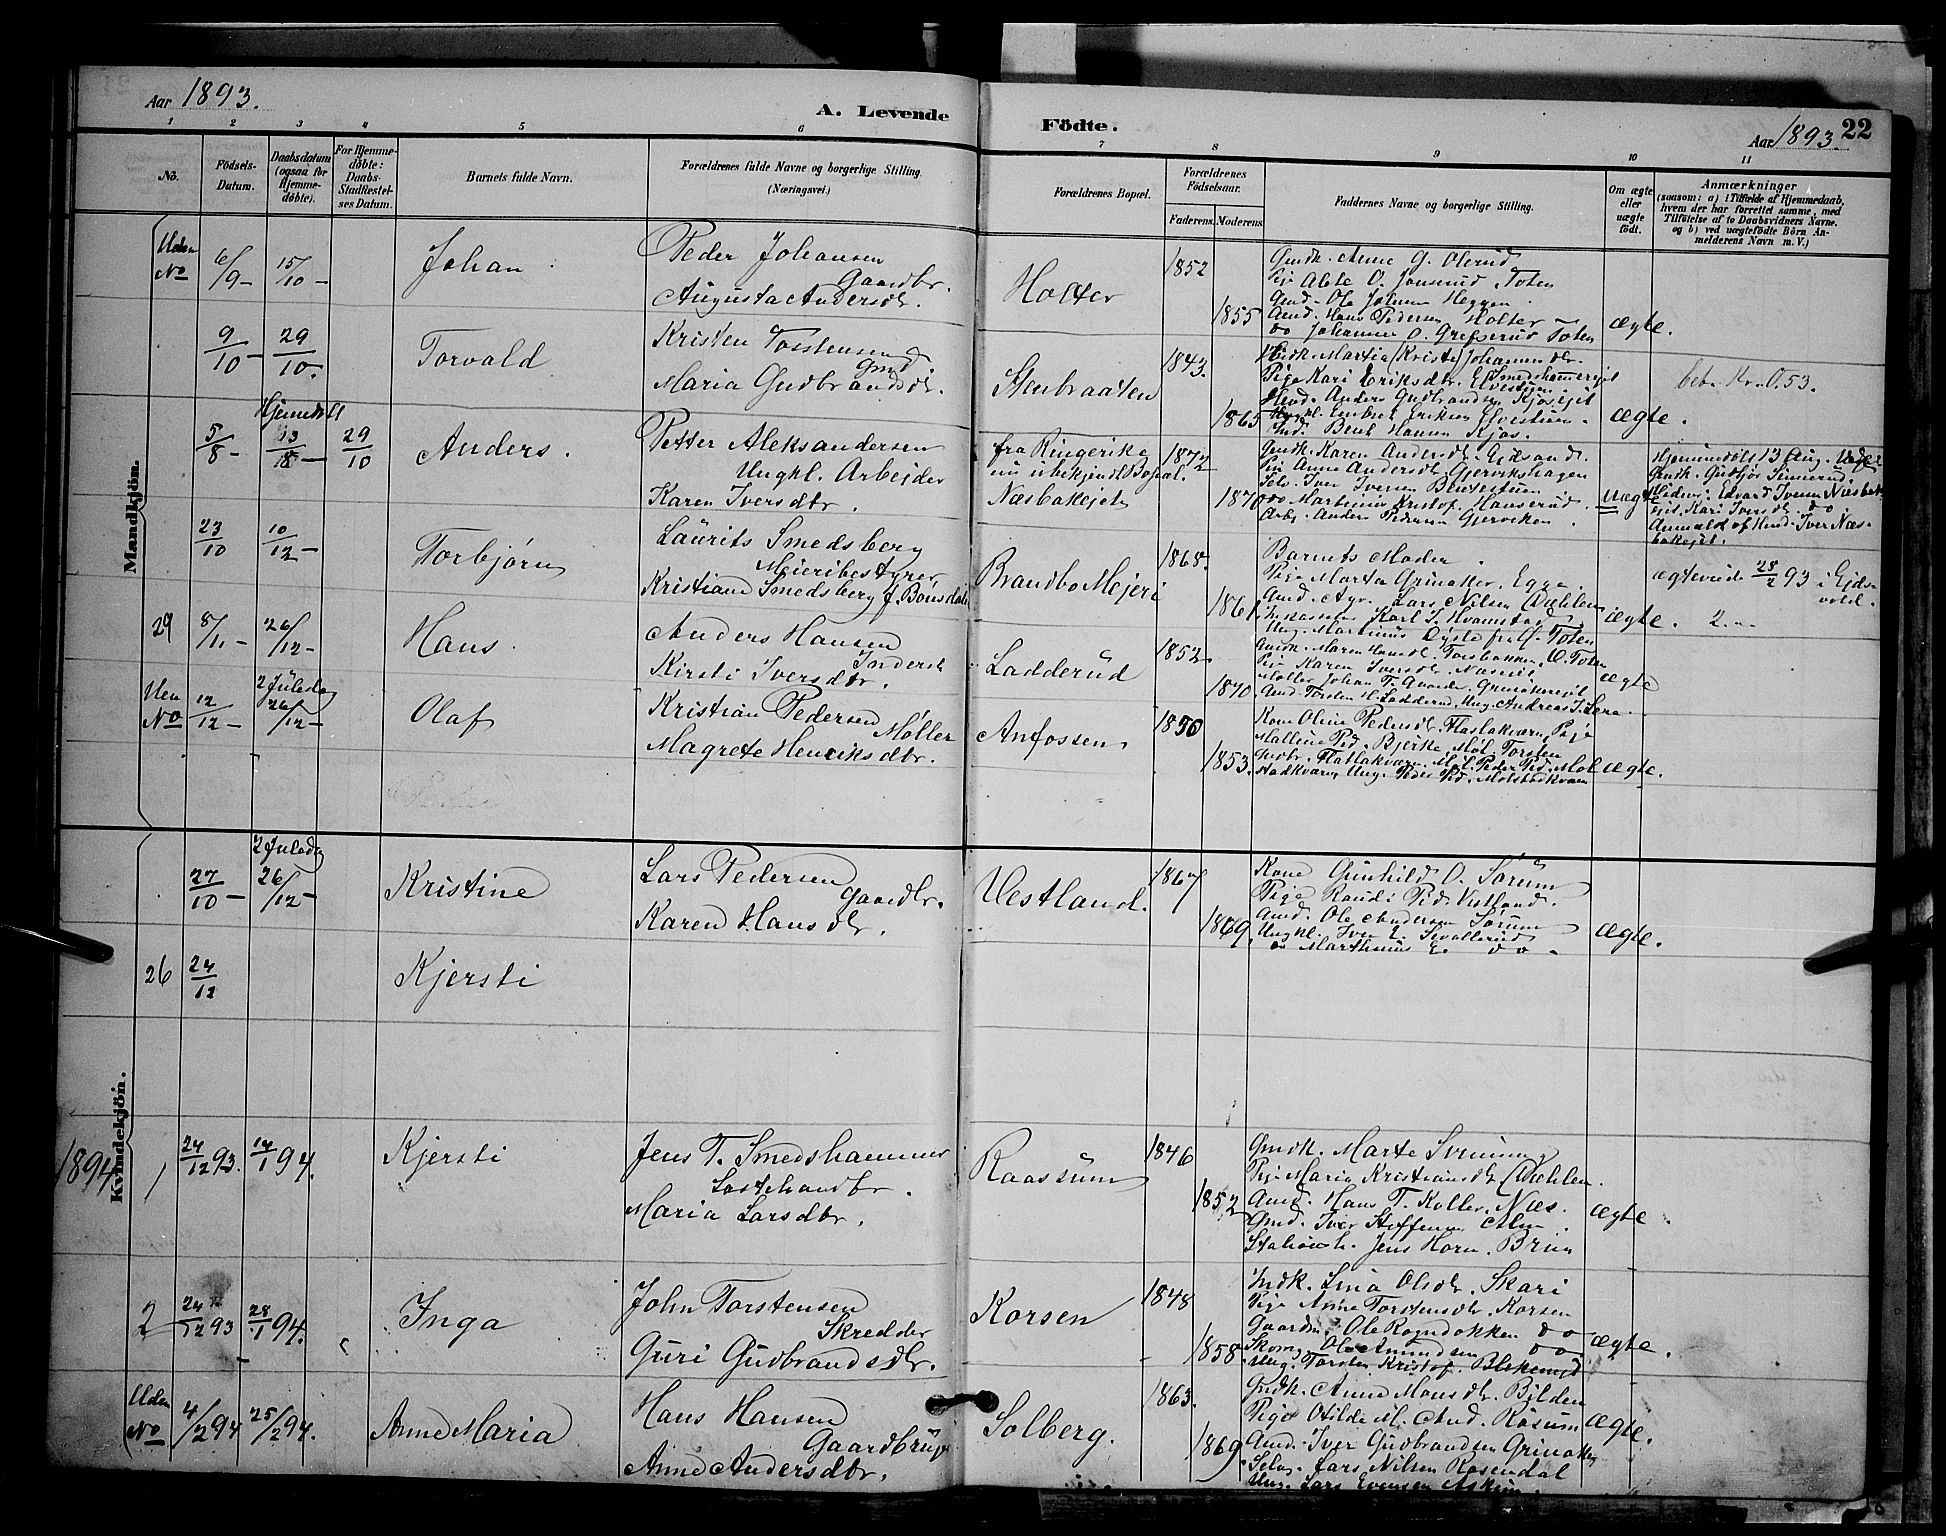 Aar 1893.
A. Levende
Födte.
Aar 1893.
22
1 2 3 4 5 6
7 8 9 10 11
Nö.
Födsels-
Datum.
Daabsdatum
(ogsaa for
Hjemme-
döbte).
For Hjemme-
döbte:
Daabs-
Stadfæstel-
ses Datum.
Barnets fulde Navn.
Forældrenes fulde Navne og borgerlige Stilling.
(Næringsvei.)
Forældrenes Bopæl.
Forældrenes
Födselsaar.
Faderens. Moderens.
Faddernes Navne og borgerlige Stilling.
Om ægte
eller
uægte
födt.
Anmærkninger
(saasom: a) i Tilfælde af Hjemmedaab,
hvem der har forrettet samme, med
Tilföielse af to Daabsvidners Navne.
og b) ved uægtefödte Börn An-
melderens Navn m. V.)
Mandkjön.
Uden
No
6/9 -
15/10 -
Johan
Peder Johansen
Gaardbr.
Augusta Andersdtr.
Holter
1852
1855
Gmdk. Anne G. Olerud
Pige Alete O. Jonsrud Toten
Gmd. Ole Johnsen Heggen
Gmd. Hans Pedersen Holter
do Johannes O. Grefsrud Toten
ægte.
9/10 -
29/10.
Torvald
Kristen Torstensen
Gmd
Maria Gudbrandsdtr.
Stenbraaten
1843.
1865
Pige Kari Eriksdtr.
Hmd. Anders Gudbrandsen Kjøsejet
Ungkl. Embret Eriksen
Ind. Bernt Hansen Kjøs.
ægte.
bet. Kr. 0.53.
5/8 -
Hjemedøbt
13/8 -
29/10
Anders.
Petter Aleksandersen
Ungkl. Arbejder
Karen Iversdtr.
fra Ringerike
nu ubekjendt Bopæl.
Næsbakejet
1872
1870
Gmdk. Karen Andersdtr.
Pige Anne Andersdtr. Gjervikshagen
Selv. Iver Iversen
do Martinius Kristof. Hanserud
Arb. Anders Pedersen Gjerviken
Uægte
Hjemmedøbt 13 Aug.
Edvard Iversen Næsbak
ejet Kari Iversdtr. do
Anmeldt af Hmd. Iver Næs-
bakejet.
23/10
10/12 -
Torbjørn
Laurits Smedsberg
Meieribestyrer
Kristiane Smedsberg f. Bonsdalen
Brandbo Mejeri
1868.
1861.
Barnets Moder
Pige Marta Grinaker. Egge.
Gmd. Agr. Lars Nilsen Dæhlen
Karl S. Hvamstad
Ung. Martinus Øysle fra Ø. Toten
ægte.
ægteviede 28/2 93 i Ejds-
vold.
2. --
29
8/11 -
26/12 -
Hans.
Anders Hansen
Inderst
Kirsti Iversdtr.
Ladderud
1852
1870
Gmdk. Maren Hansdtr. Ø. Toten
Pige Karen Iversdtr. Næsejet
Møller Johan T. Gaarder Grinakerejet
Gmd. Torsten H. Ladderud, Ung. Andreas J. Lera
ægte
Uden
No
12/12 -
2 Juledag
26/12 -
Olaf
Kristian Pedersen
Møller
Magrete Henriksdtr.
Amfossen
1850
1853.
Kone Oline Pedersdtr. Flatlakværn, Pige
Malline Ped. Bjerke, Møl. Torsten
Gudbr. Flatlakværn. Møl. Peder Ped. Møl
stadkværn, Ung. Peder Ped. Mølstadkværn
ægte.
Kvindekjön.
27/10 -
2 Juledag
26/12 -
Kristine
Lars Pedersen
Gaardbr.
Karen Hansdtr.
Vestland.
1867
1869.
Kone Gunhild O. Sørum
Pige Randi Ped. Vestland.
Gmd. Ole Andersen Sørum
Ungkl. Iver E.
do Marthinus E. do
ægte.
26
24/12
Kjersti
1894
1
24/12 93.
14/1 94.
Kjersti
Jens T. Smedshammer
Lastehandler.
Maria Larsdtr.
Raassum
1846
1852
Gmdk. Marte Svenrud
Pige Maria Kristiansdtr. Dæhlen.
Gmd. Hans T. Koller, Næs.
Gmd. Iver Steffensen Alm
Jens Horn. Bruu
ægte.
2
24/12 93
28/1 94.
Inga
John Torstensen
Skredder
Guri Gudbrandsdtr.
Korsen
1848
1858
Indk. Lina Olsdtr. Skari
Pige Anne Torstensdtr. Korsen
Gaardm. Ole Rogndokken do
Skomg. Ole Amundsen do
Ung. Torsten Kristof.
ægte.
Uden
No
4/2 94
25/2 94.
Anne Maria
Hans Hansen
Gaardbruger
Anne Andersdtr.
Solberg.
1863.
1869
Gmdk. Anne Monsdtr. Bilden
Pige Otilde M. And. Røsum
Gmd. Iver Gudbrandsen Grinaker
Selvg. Lars Nilsen Rosendal
Ung. Lars Evensen Askim.
ægte.